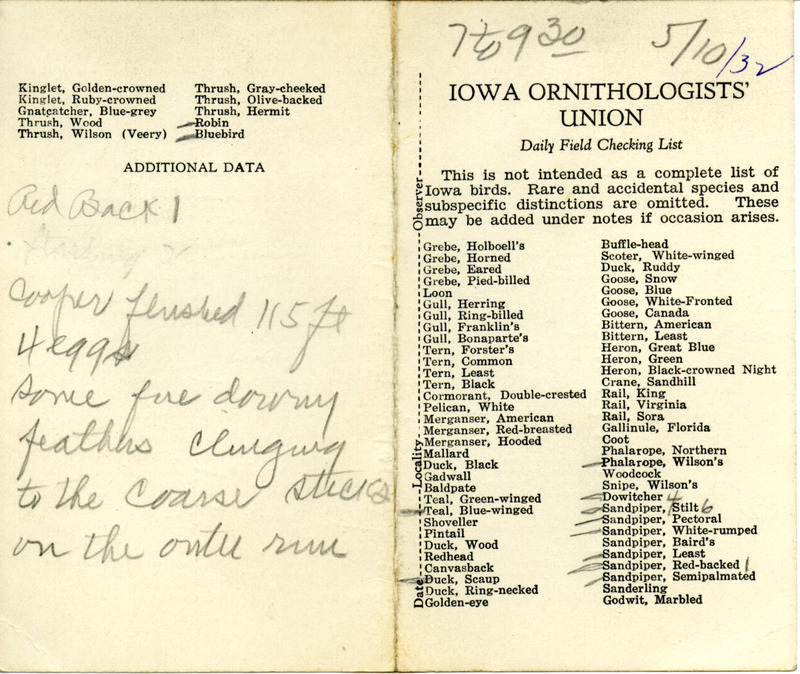 Kinglet, Golden-crowned
Kinglet, Ruby-crowned
Gnatcatcher, Blue-grey
Thrush, Wood
Thrush, Wilson (Veery)
Thrush, Gray-cheeked
Thrush, Olive-backed
Thrush, Hermit
Robin
Bluebird
ADDITIONAL DATA
Red Back 1
Cooper flushed 115 ft
4 eggs
some fine downy
feathers clinging
to the coarse sticks
on the outer rim
7 to 9 30 5/10/32
IOWA ORNITHOLOGISTS'
UNION
Daily Field Checking List
This is not intended as a complete list of
Iowa birds. Rare and accidental species and
subspecific distinctions are omitted. These
may be added under notes if occasion arises.
Date Locality Observer
Grebe, Holboell's
Grebe, Horned
Grebe, Eared
Grebe, Pied-billed
Loon
Gull, Herring
Gull, Ring-billed
Gull, Franklin's
Gull, Bonaparte's
Tern, Forster's
Tern, Common
Tern, Least
Tern, Black
Cormorant, Double-crested
Pelican, White
Merganser, American
Merganser, Red-breasted
Merganser, Hooded
Mallard
Duck, Black
Gadwall
Baldpate
Teal, Green-winged
Teal, Blue-winged
Shoveller
Pintail
Duck, Wood
Redhead
Canvasback
Duck, Scaup
Duck, Ring-necked
Golden-eye
Buffle-head
Scoter, White-winged
Duck, Ruddy
Goose, Snow
Goose, Blue
Goose, White-Fronted
Goose, Canada
Bittern, American
Bittern, Least
Heron, Great Blue
Heron, Green
Heron, Black-crowned Night
Crane, Sandhill
Rail, King
Rail, Virginia
Rail, Sora
Gallinule, Florida
Coot
Phalarope, Northern
Phalarope, Wilson's
Woodcock
Snipe, Wilson's
Dowitcher 4
Sandpiper, Stilt 6
Sandpiper, Pectoral
Sandpiper, White-rumped
Sandpiper, Baird's
Sandpiper, Least
Sandpiper, Red-backed 1
Sandpiper, Semipalmated
Sanderling
Godwit, Marbled